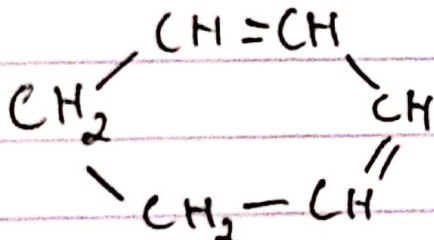 CH=CH
CH₂ CH
CH₂-CH